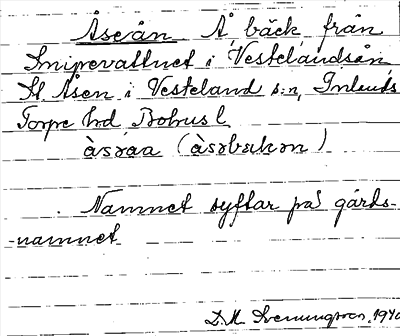 Åseån Å, bäck från
Snipevattnet i Vestelandsån
St. Åsen i Vesteland s:n, Inlands
Torpe hd Bohus l.
àsəaa (àsəbækən)
Namnet syftar på gårds-
-namnet
D. M. 1940